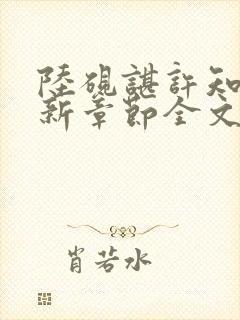 陸硯諶許知
新章節全文
肖若水